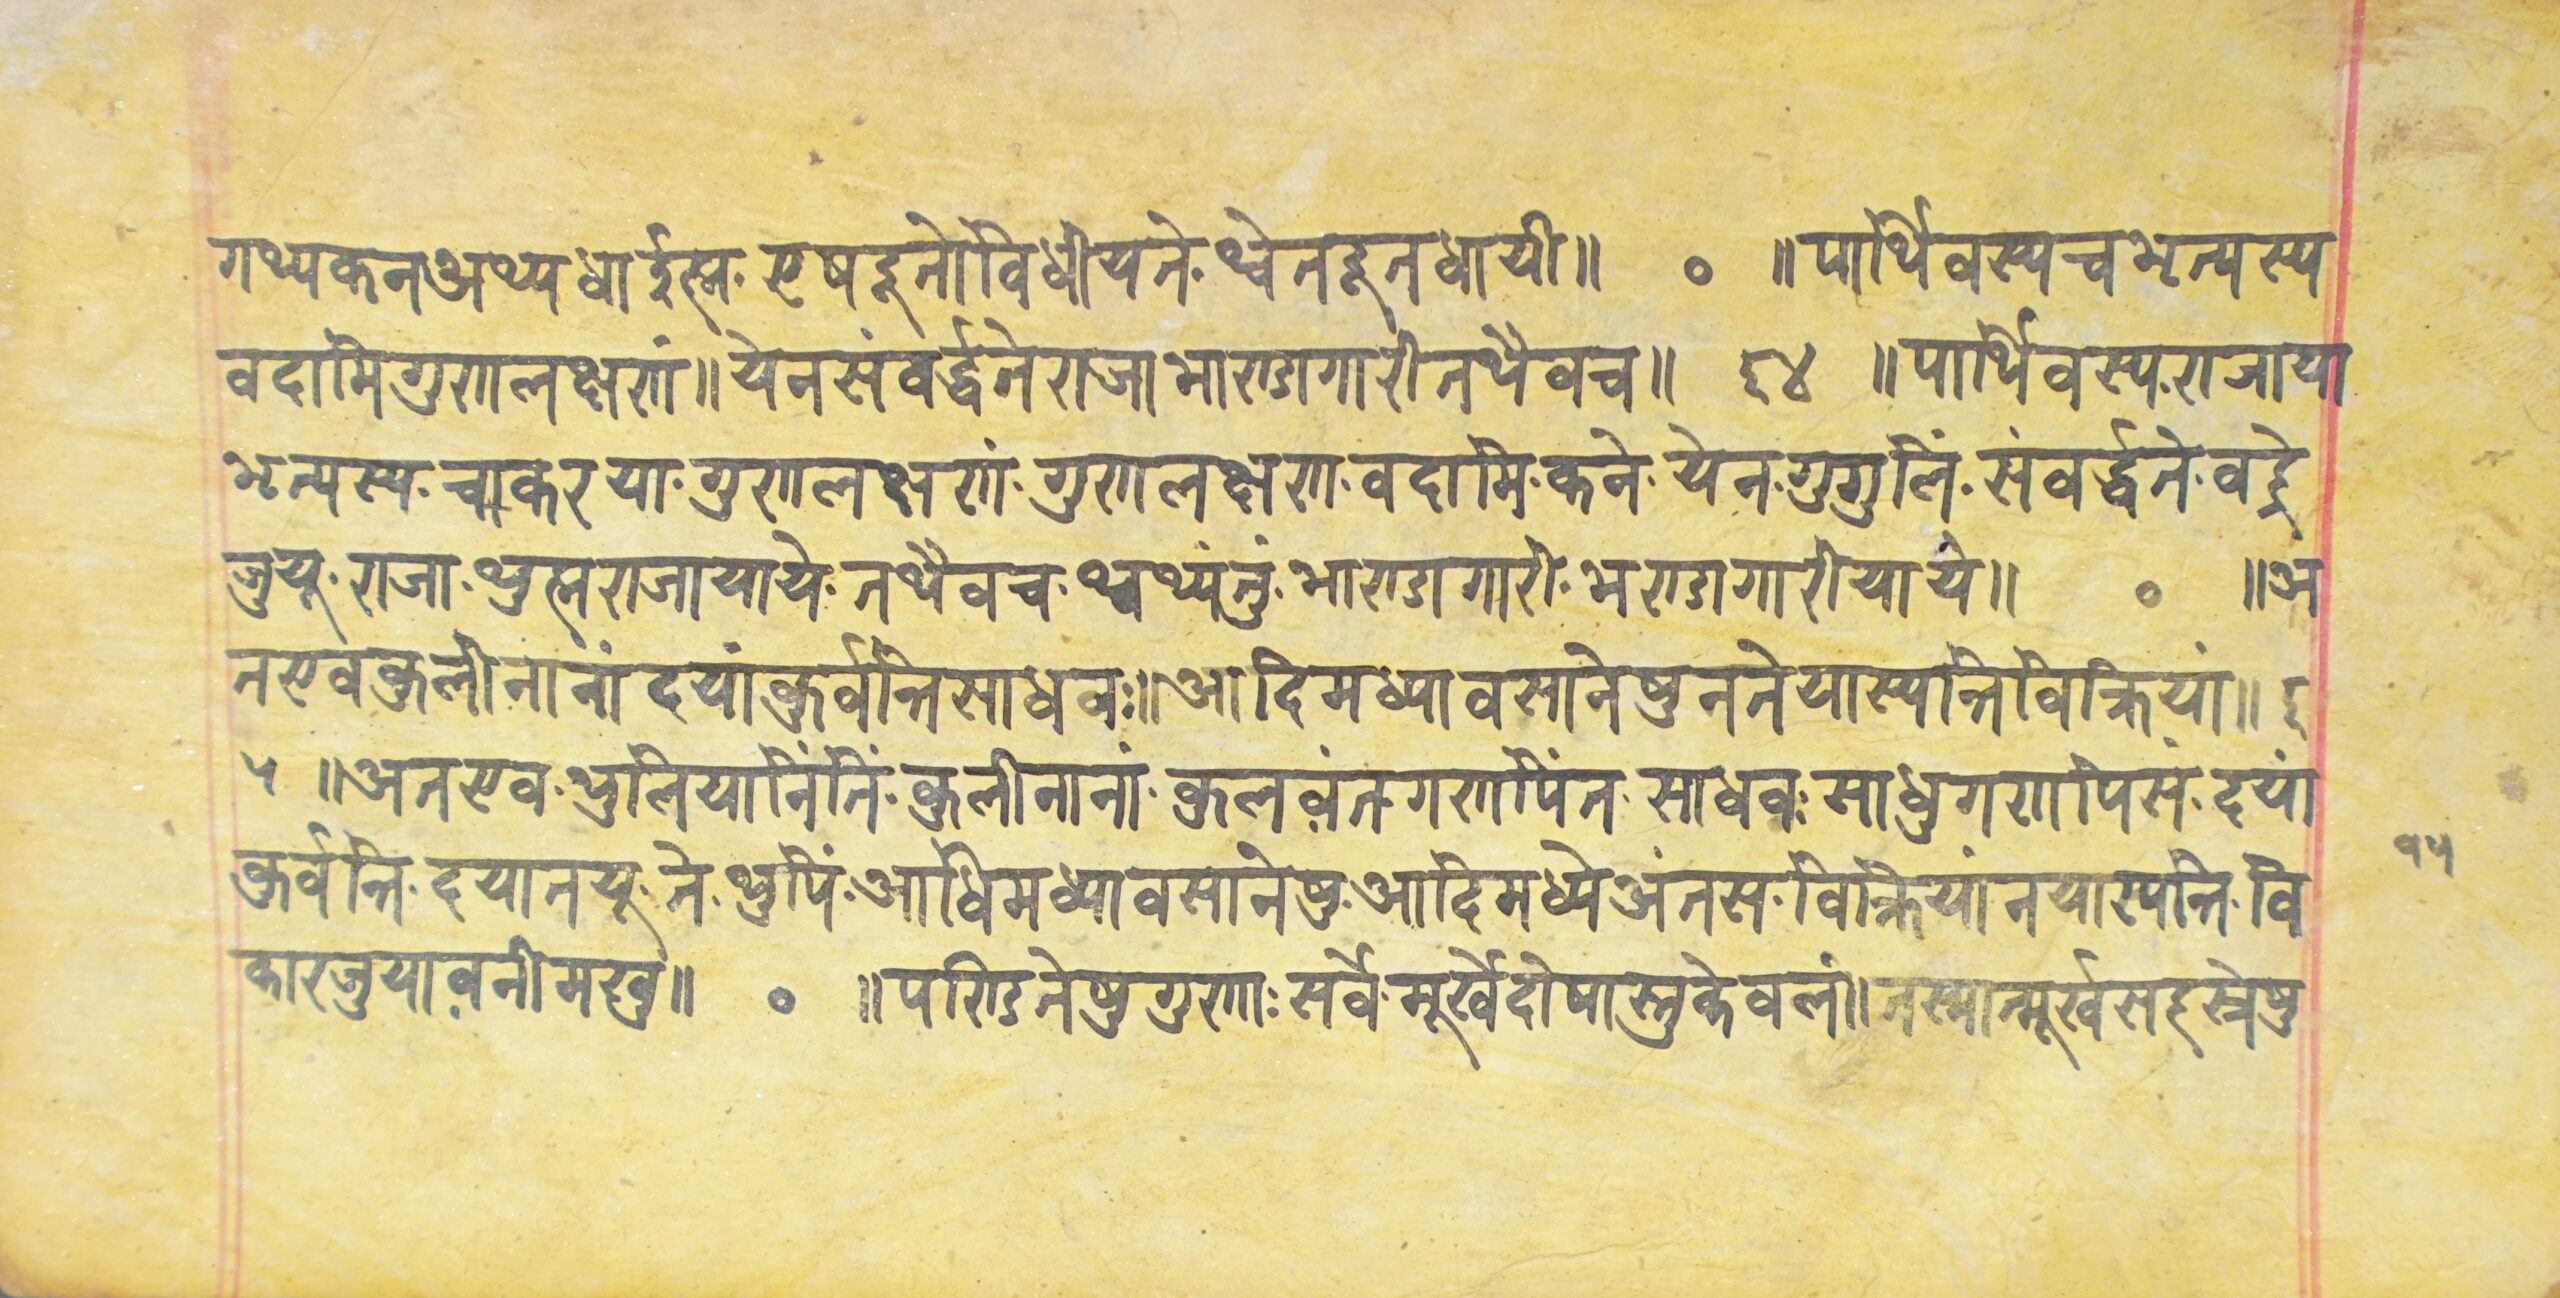 गथ्यकतनअथ्यधार्इह्म· एषदूतोविधीयते· थ्वेतदूतधायी॥ ० ॥पार्थिवस्यचभृत्यस्य
वदामिगुणलक्षणं॥येनसंवर्द्धतेराजाभाण्डागारीतथैवच॥ ६४ ॥पार्थिवस्य·राजाया
भृत्यस्य·चाकरया·गुणलक्षणं·गुणलक्षण·वदामि·कने·येन·गुगुलिं·संवर्द्धते·वद्रे
जुयू·राजा·थुह्मराजायाये·तथैवच·थ्वथ्यंतुं·भाण्डागारी·भण्डागारीयाये॥ ० ॥अ
तएवकुलीनानांदयांकुर्वन्तिसाधवः॥आदिमध्यावसानेषुनतेयास्यन्तिविक्रियां॥ ६
५ ॥अतएव·थुलियानिंतिं·कुलीनानां·कुलवंतगणपिंत·साधवः·साधुगणपिसं·दयां
कुर्वन्ति·दयातयू·ते·थुपिं·आधिमध्यावसानेषु·आदिमध्येअंतस·विक्रियांनयास्यन्ति·वि
कारजुयावनीमखु॥ ० ॥पण्डितेषुगुणाः·सर्वे·मूर्खेदोषास्तुकेवलं॥तस्मान्मूर्खसहस्रेषु
१५